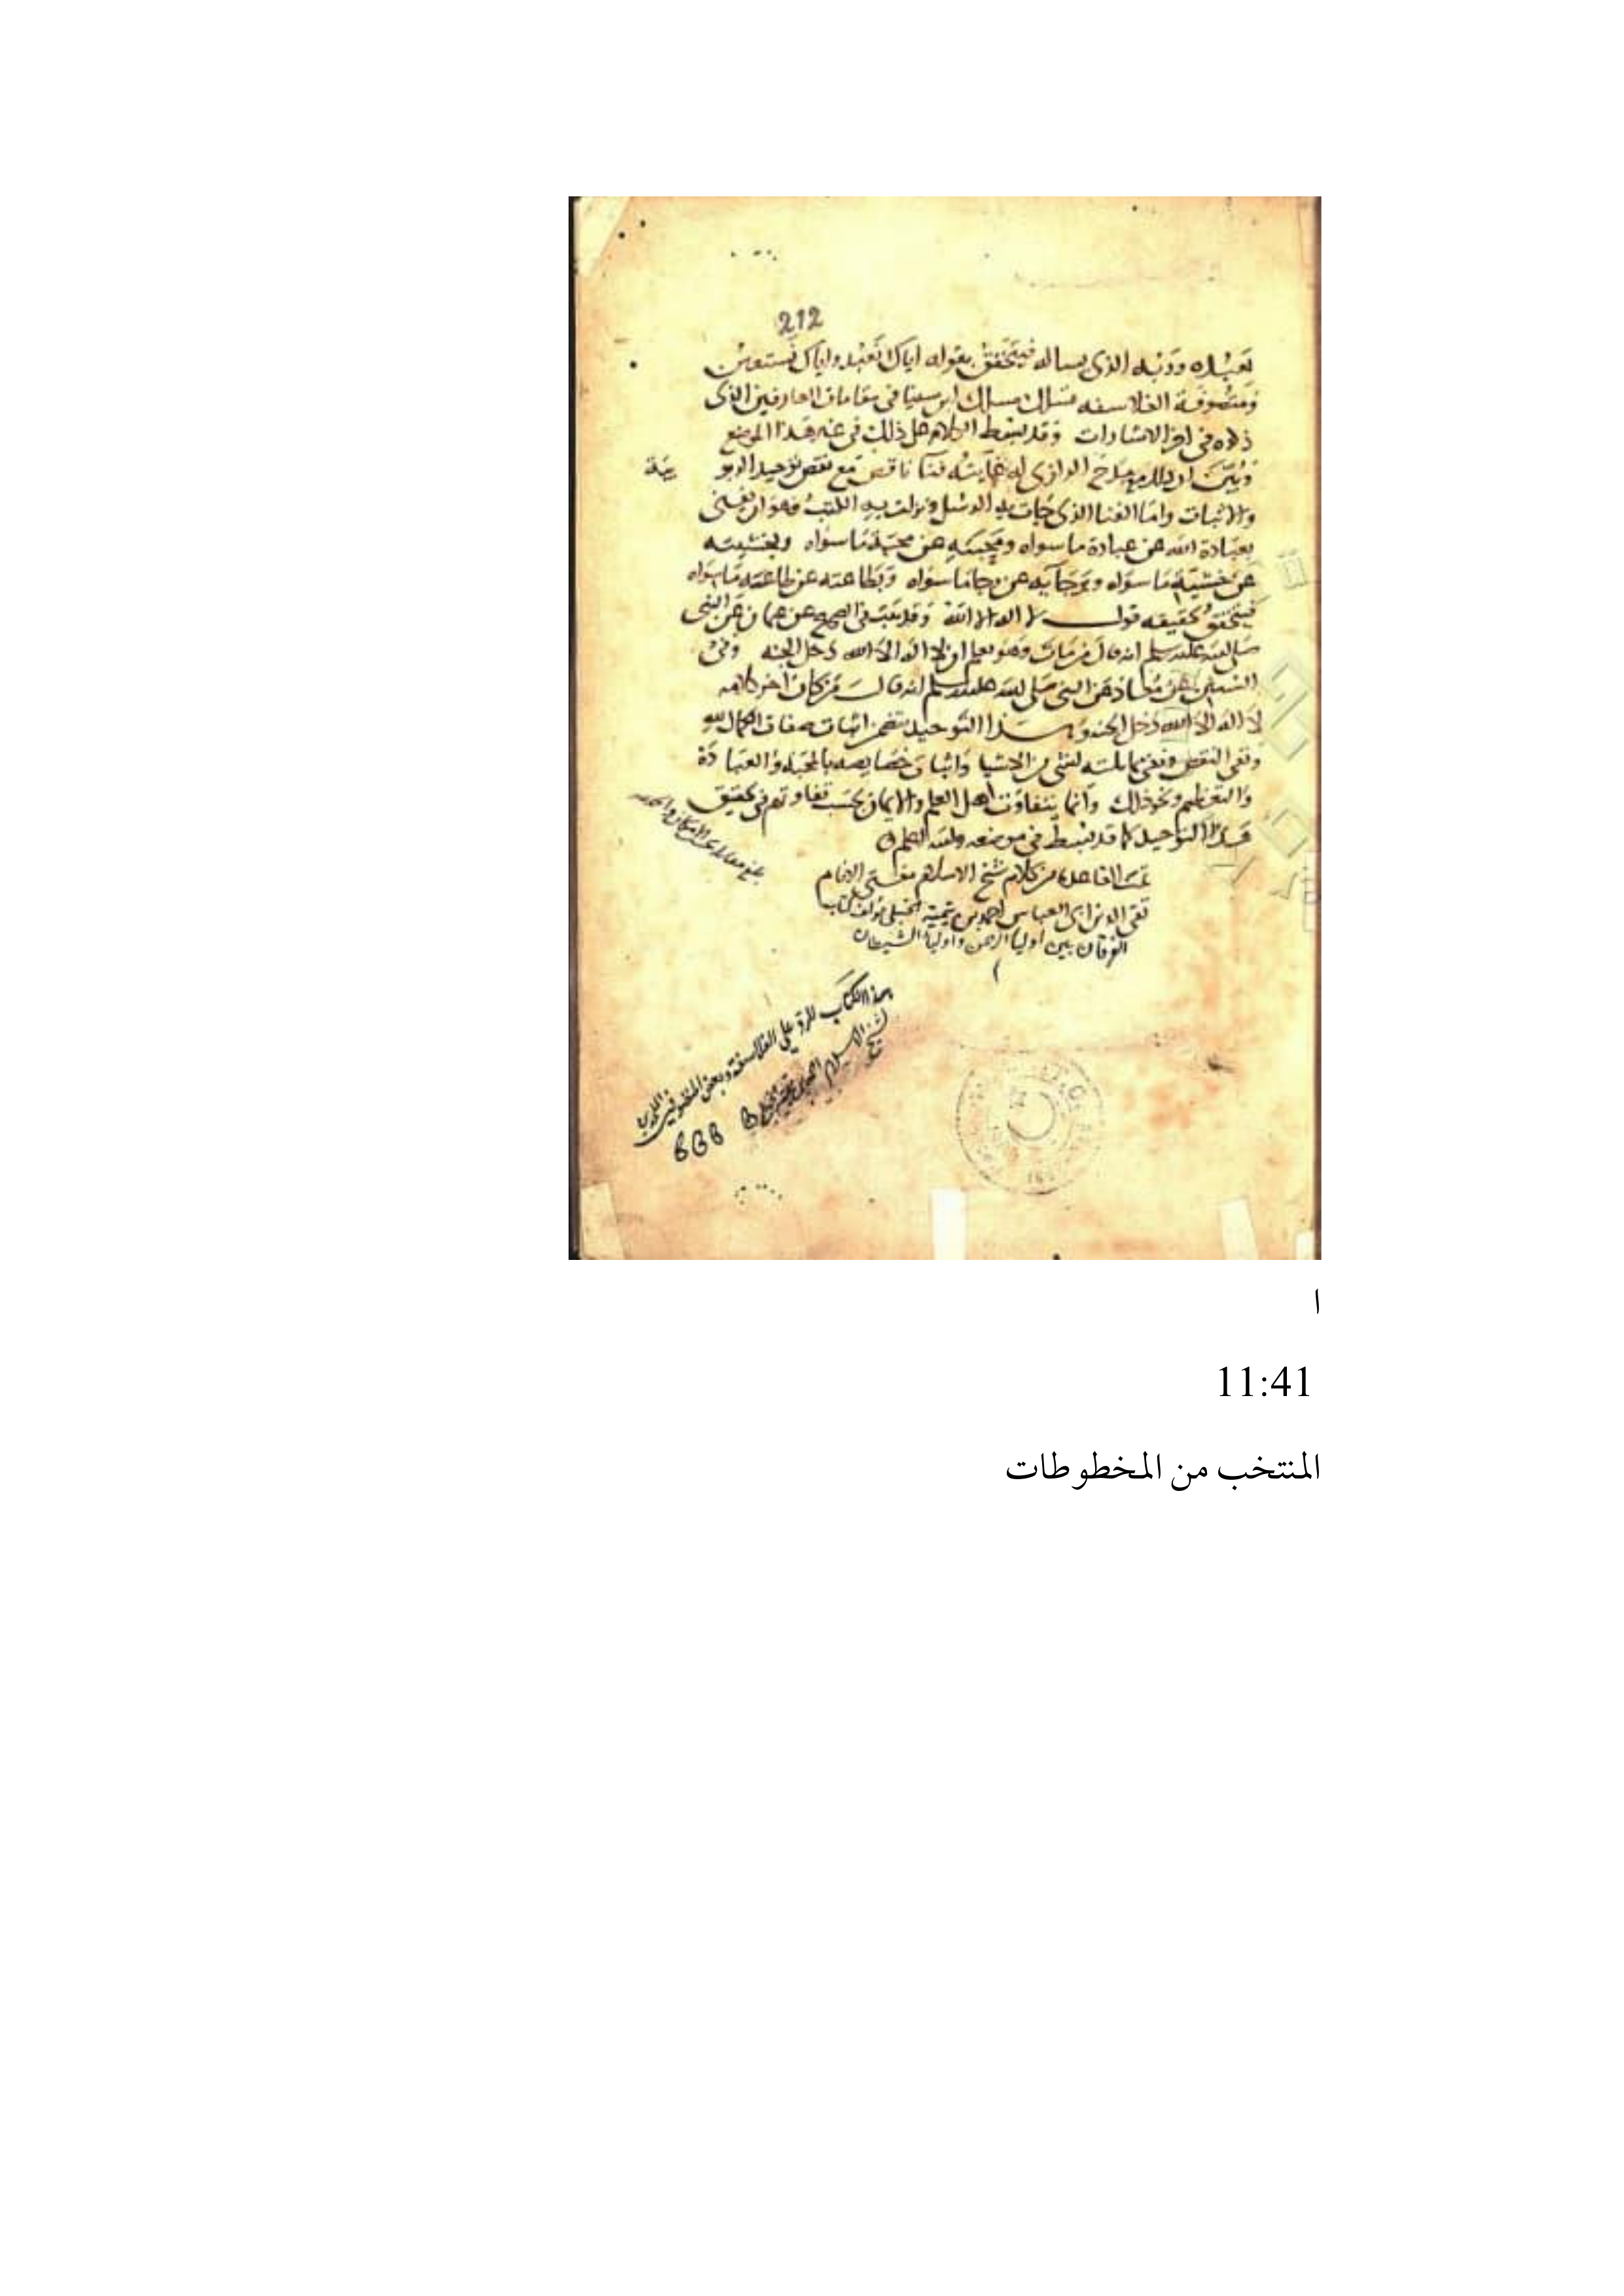 212
تعبده وربه الذي يساله فيتحقق بقوله اياك نعبد واياك نستعين
ومتصوفة الفلاسفه تسلك مسلك ابن سينا في مقامات العارفين الذي
ذكره في اخر الاشارات وقد بسط الكلام على ذلك في غير هذا الموضع
وبين ان ذلك مع مدح الرازي له غايته فنا ناقص مع نقص توحيد الربو بية
والاثبات واما الفنا الذي جات به الرسل ونزلت به الكتب فهو ان يفنى
بعبادة الله عن عبادة ما سواه ومحبته عن محبة ما سواه وبخشيته
عن خشية ما سواه وبرجايه عن رجا ما سواه وبطاعته عن طاعة ما سواه
فيتحقق بحقيقه قول لا اله الا الله وقد ثبت في الصحيح عن عثمان عن النبي
صلى الله عليه وسلم انه قال من مات وهو يعلم ان لا اله الا الله دخل الجنه وفي
السنن عن معاذ عن النبي صلى الله عليه وسلم انه قال من كان اخر كلامه
لا اله الا الله دخل الجنه وهذا التوحيد يتضمن اثبات صفات الكمال لله
ونفي النقص ونفي مماثلته لشي من الاشيا واثبات خصايصه بالمحبه والعبادة
والتعظيم ونحو ذلك وانما يتفاوت اهل العلم والايمان بحسب تفاوتهم في تحقيق
هذا التوحيد كما قد بسط في موضعه والله اعلم
بلغ مقابلة حسب الامكان والحمد لله
تمت القاعدة من كلام شيخ الاسلام مفتي الانام
تقي الدين ابي العباس احمد بن تيمية الحنبلي مولف كتاب
الفرقان بين اوليا الرحمن واوليا الشيطان
هذا الكتاب للرد على الفلاسفة وبعض المتصوفين
شيخ الاسلام
ا
11:41
المنتخب من المخطوطات